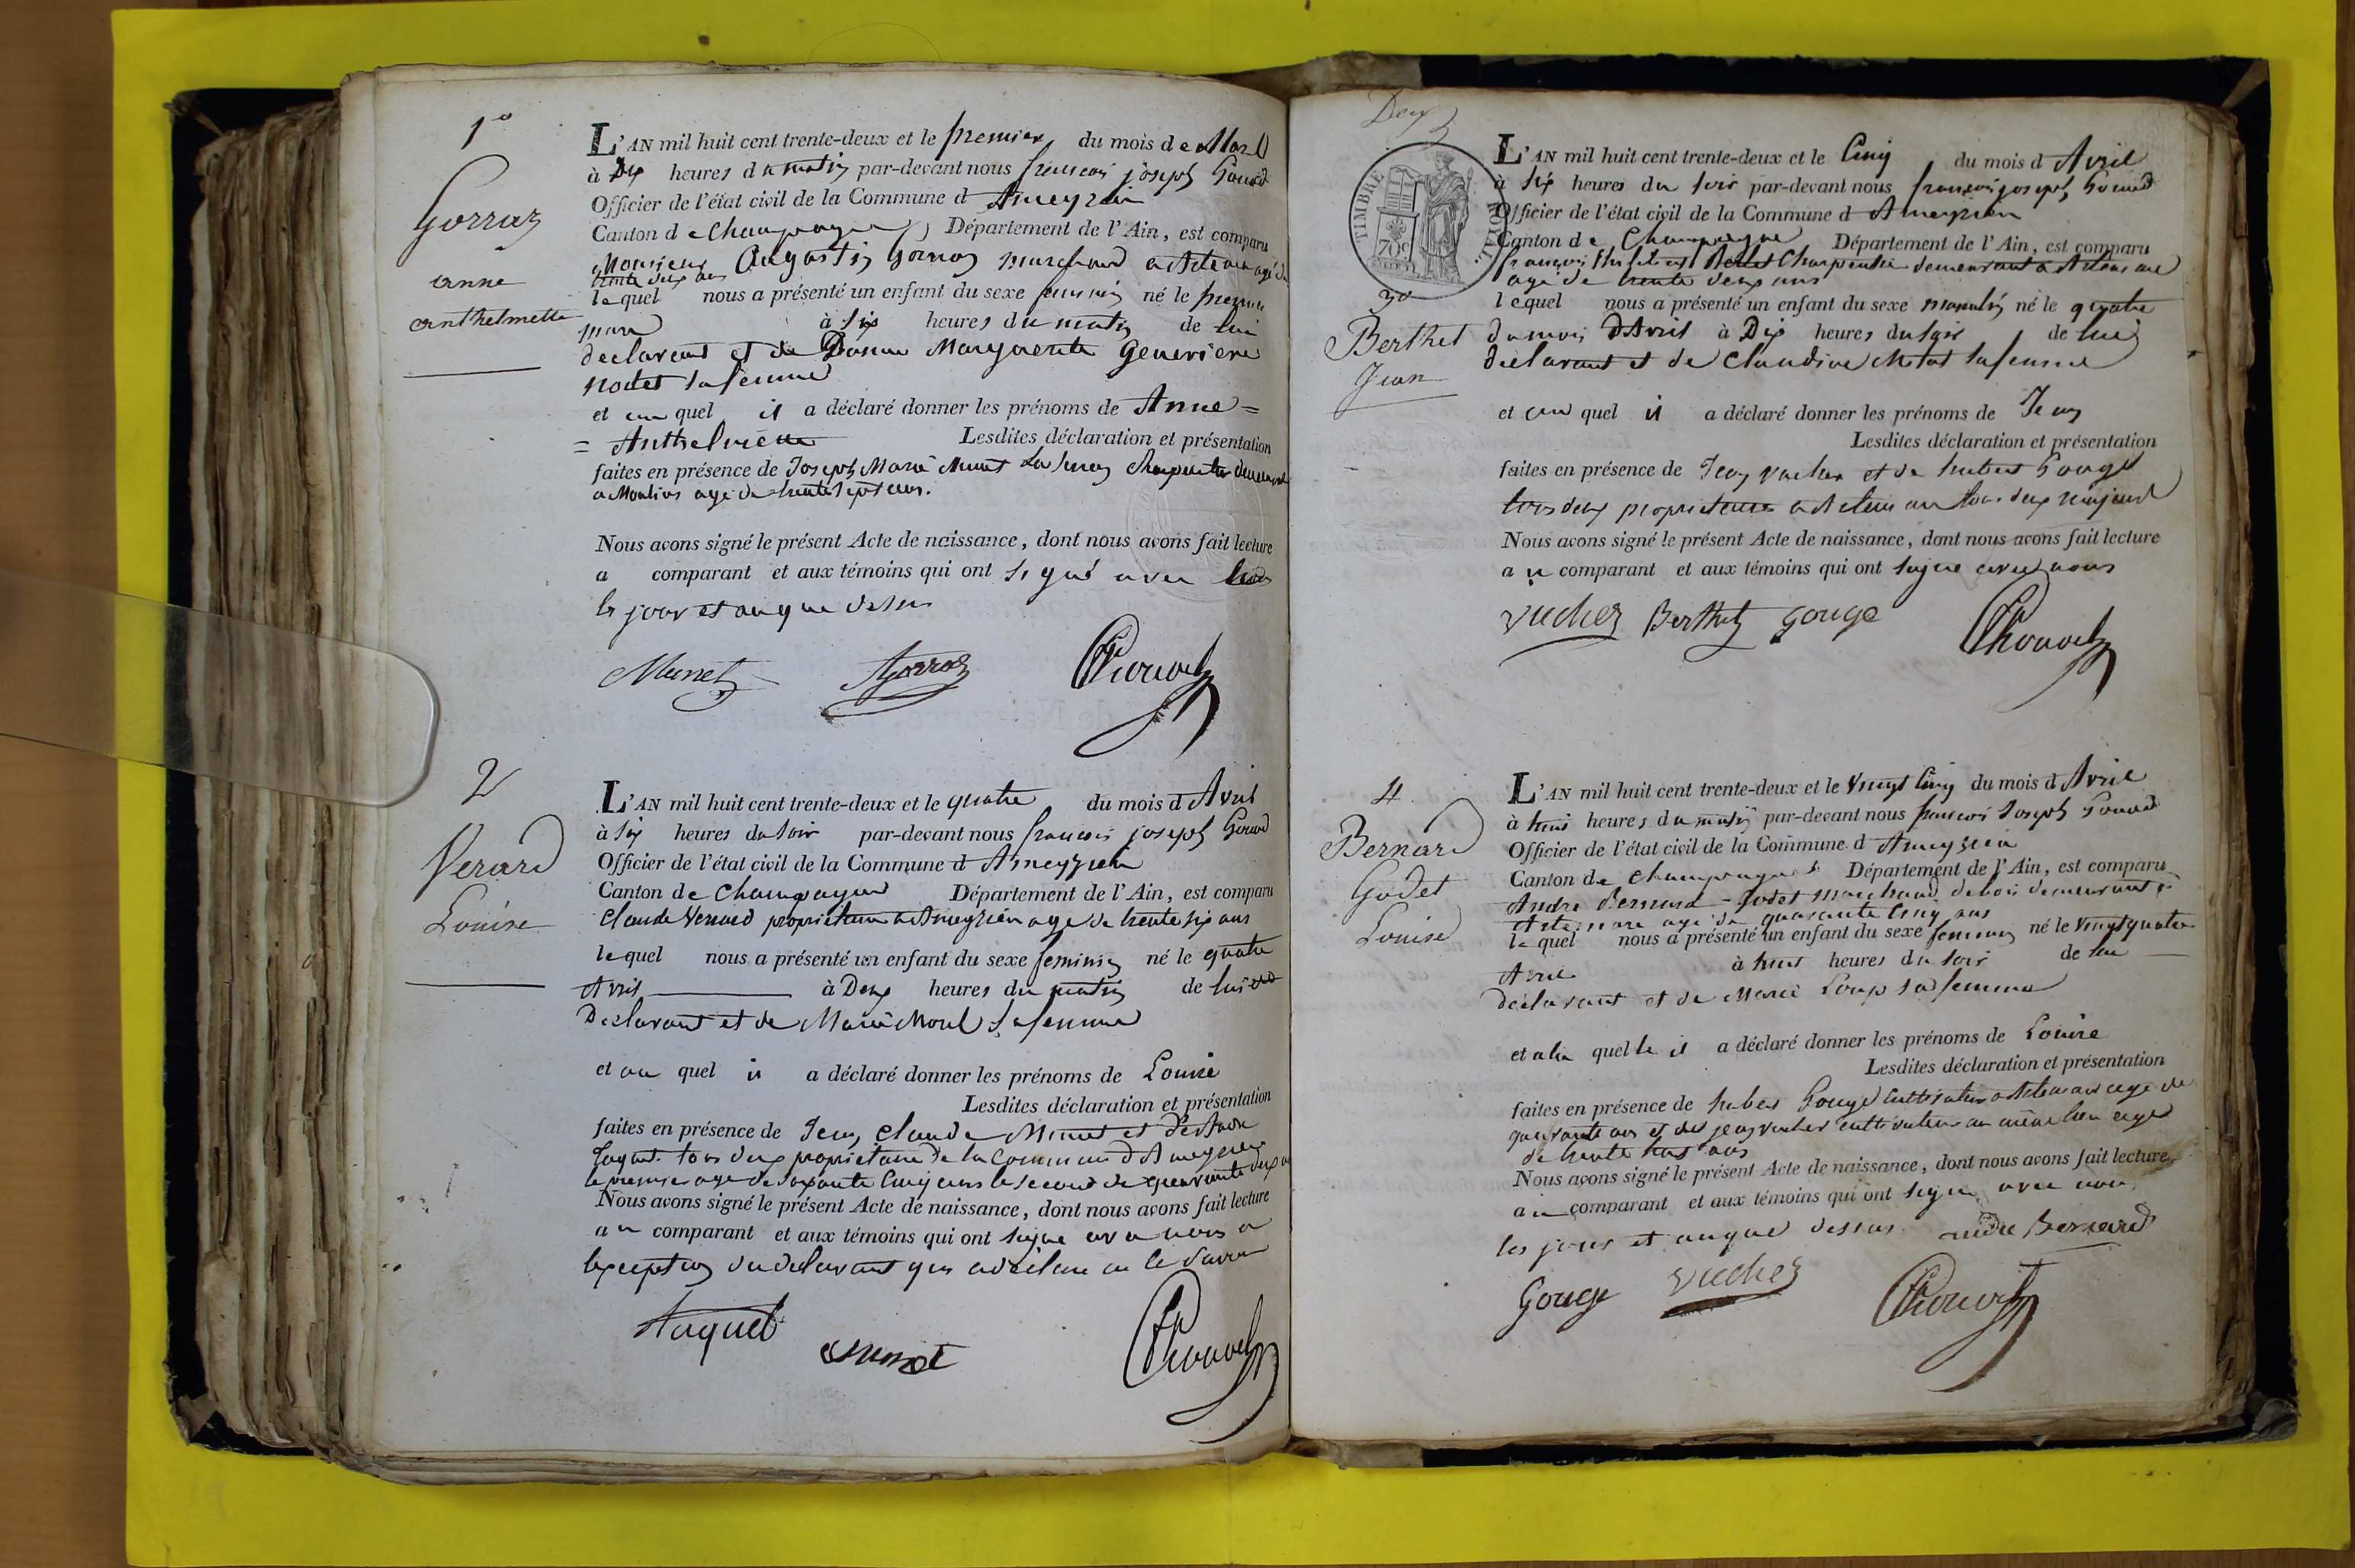 1°
Gorraz
anne
anthelmette
L'AN mil huit cent trente-deux et le premier du mois de Mars
à Dix heures du matin par-devant nous francois joseph
Officier de l'état civil de la Commune d Ameyzieu
Canton de Champagne, Département de l'Ain, est comparu
Monsieur Augustin Gorraz marchand a Artemare agé de
trente deux ans
lequel nous a présenté un enfant du sexe feminin né le premier
mars à six heures du matin de lui
declarant et de Dame Marguerite Genevieve
Nodet sa femme
et au quel il a déclaré donner les prénoms de Anne =
= Anthelmette Lesdites déclaration et présentation
faites en présence de Joseph Marie Munet charpentier demeurant
a agé de trente sept ans.
Nous avons signé le présent Acte de naissance, dont nous avons fait lecture
a comparant et aux témoins qui ont signé avec nous
les jour et an que dessus
Munet AGorraz
2
Verard
Louise
L'AN mil huit cent trente-deux et le quatre du mois d Avril
à six heures du soir par-devant nous francois joseph
Officier de l'état civil de la Commune d Ameyzieu
Canton de Champagne Département de l'Ain, est comparu
Claude Verard proprietaire a Ameyzieu agé de trente six ans
lequel nous a présenté un enfant du sexe feminin né le quatre
Avril à Deux heures du matin de lui
Declarant et de Marie sa femme
et au quel il a déclaré donner les prénoms de Louise
Lesdites déclaration et présentation
faites en présence de Jean Claude Munet et d'
tous deux proprietaire de la Commune d'Ameyzieu
le premier agé de soixante Cinq ans le second de quarante deux ans
Nous avons signé le présent Acte de naissance, dont nous avons fait lecture
au comparant et aux témoins qui ont signé avec nous a
lexception du declarant qui a declaré ne le savoir
Munet
Deux
TIMBRE ROYAL
70c
L'AN mil huit cent trente-deux et le Cinq du mois d Avril
à six heures du soir par-devant nous françois joseph
Officier de l'état civil de la Commune d Ameyzieu
Canton de Champagne Département de l'Ain, est comparu
françois Berthet Charpentier demeurant a Artemare
agé de trente deux ans
3°
Berthet
Jean
lequel nous a présenté un enfant du sexe masculin né le quatre
du mois d'Avril à Dix heures du soir de lui
declarant et de Claudine sa femme
et au quel il a déclaré donner les prénoms de Jean
Lesdites déclaration et présentation
faites en présence de Jean Vucher et de hubert Gouge
tous deux proprietaires a Artemare tous deux majeurs
Nous avons signé le présent Acte de naissance, dont nous avons fait lecture
au comparant et aux témoins qui ont signé avec nous
Vucher Berthet Gouge
4
Bernard
Godet
Louise
L'AN mil huit cent trente-deux et le vingt Cinq du mois d Avril
à huit heures du matin par-devant nous francois Joseph
Officier de l'état civil de la Commune d Ameyzieu
Canton de Champagne Département de l'Ain, est comparu
André Bernard-Godet marchand de bois demeurant a
Artemare agé de quarante Cinq ans
lequel nous a présenté un enfant du sexe feminin né le vingt quatre
Avril à huit heures du soir de lui
declarant et de Marie Loup sa femme
et a la quelle il a déclaré donner les prénoms de Louise
Lesdites déclaration et présentation
faites en présence de hubert Gouge cultivateur a Artemare age de
quarante ans et de jean vucher cultivateur au même lieu agé
de trente huit ans
Nous avons signé le présent Acte de naissance, dont nous avons fait lecture
au comparant et aux témoins qui ont signé avec nous
les jours et an que dessus. andre Bernard
Gouge Vucher